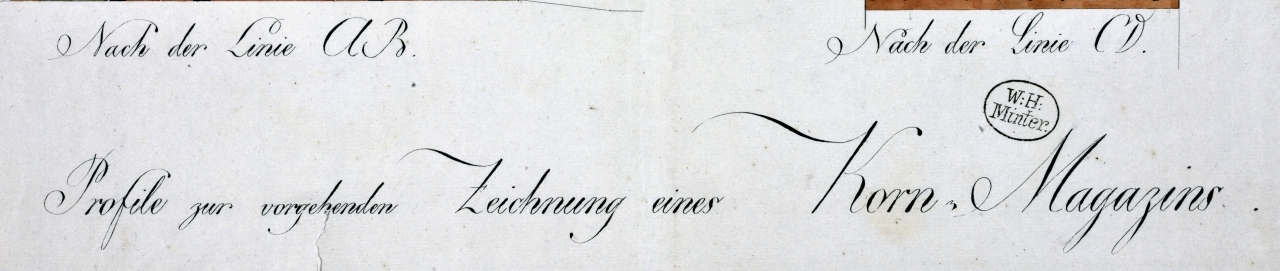 Nach der Linie AB.
Nach der Linie CD.
W: H:
Minter.
Profile zur vorgehenden Zeichnung eines Korn-Magazins.